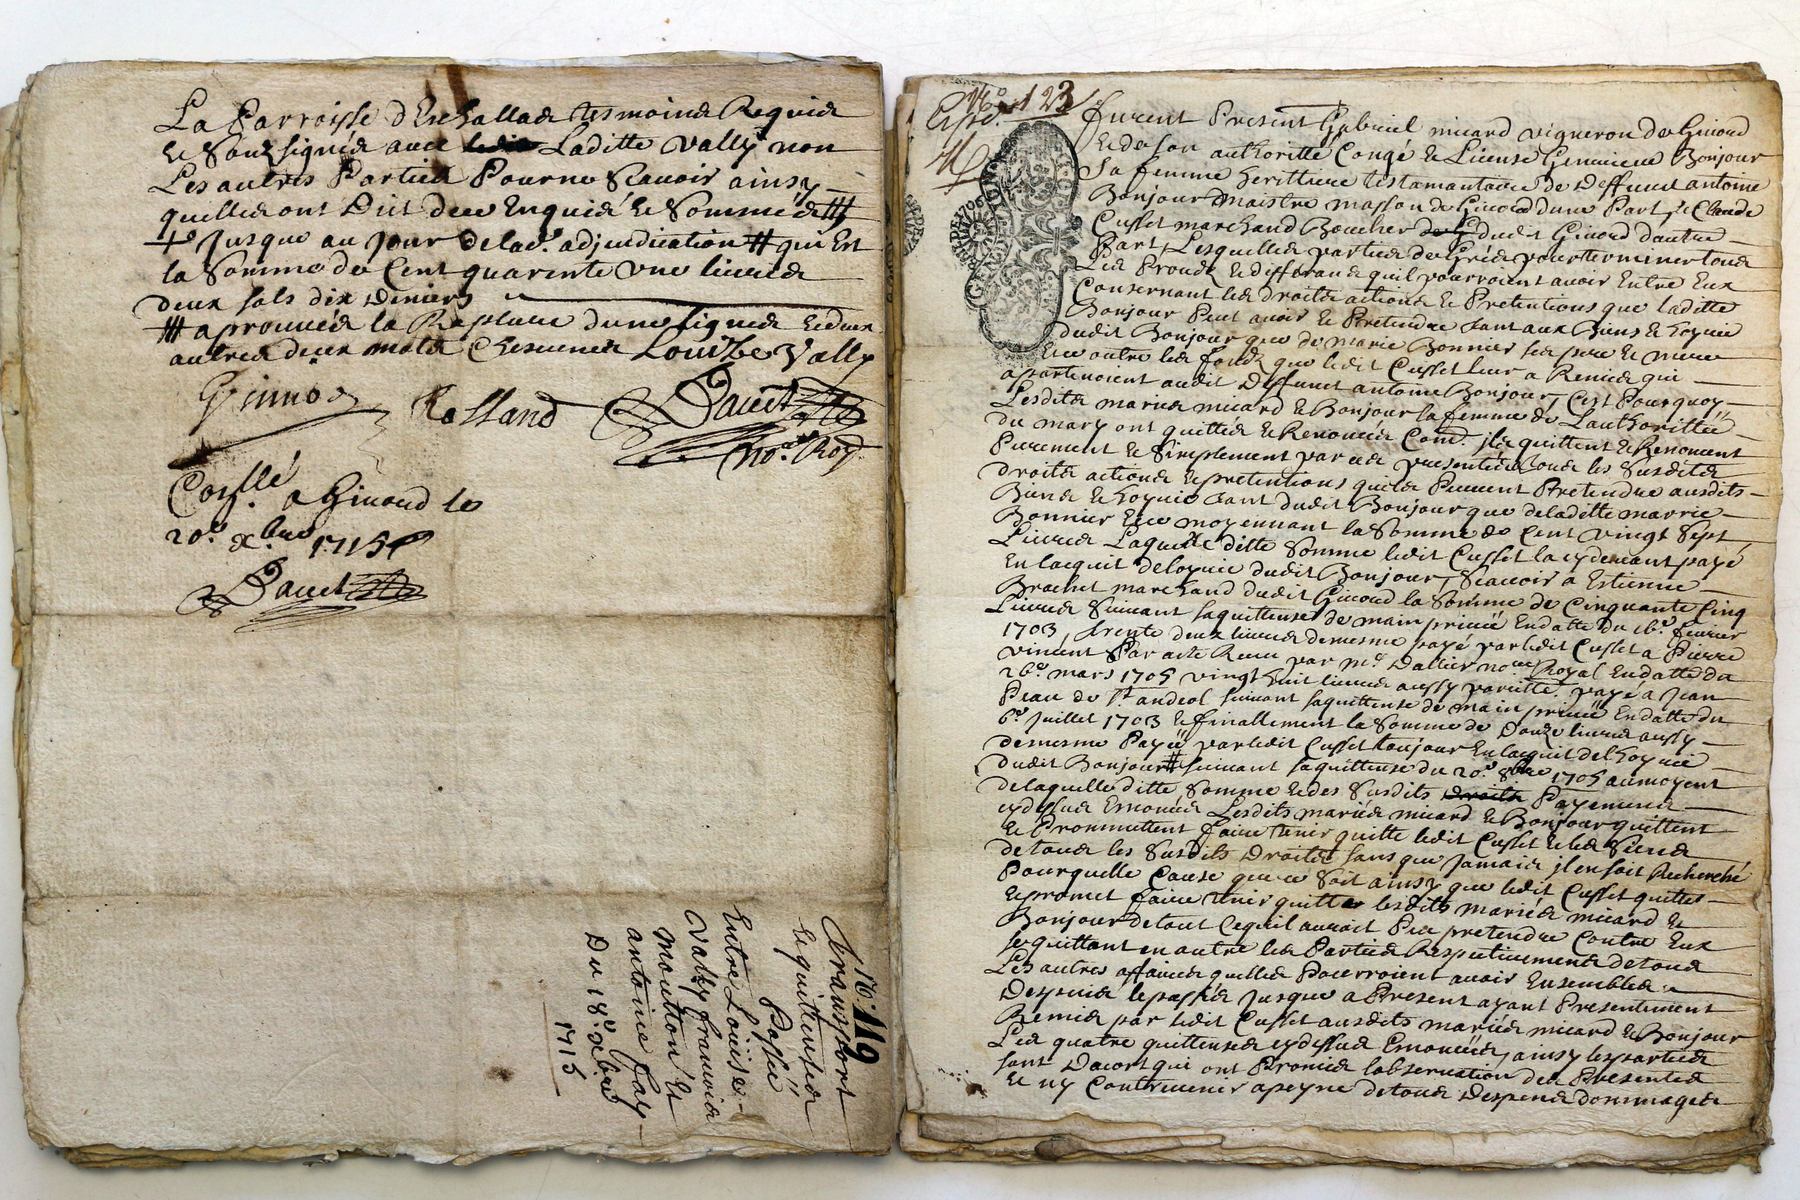 La Parroisse d'Eschallas tesmoins Requis
et Soubsignés avec Laditte Vally non
Les autres Parties Pour ne Scavoir ainsy
quelles ont Dit de ce Enquis et Sommés #
+ Jusque au Jour de lad. adjudication # qui Est
la Somme de Cent quarente une livres
deux sols dix deniers
# aprouvés la Rapture dune lignes et deux
autres deux mots Louize Vally
Rolland Dauet
no.re Roy.
Con.llé a Givord le
20.e x.bre 1715
Dauet
No. 119
Transport
et quittenses
Passée
Entre Loüise
Vally francoise
Mouton et
antoine fay
Du 18.e xbre
1715
No. 123
furent Present Gabriel micard vigneron de Givord
et de son authoritté Congé et License Bonjour
Sa femme herittiere testamantaire de Deffunct antoine
Bonjour maistre masson de Givord dune Part, et Claude
Cusset marchand Boucher dudit Givord dautre
Part, Lesquelles parties de Grés pour terminer tous
Les Procés et differans quil pourroient avoir Entre Eux
Consernant les droits actions et Pretentions que laditte
Bonjour Peut avoir et Pretendre tant aux Biens et hoyrie
dudit Bonjour que de marie Bonnier ses pere et mere
et ce outre les fonds que ledit Cusset leur a Remis qui
apartenoient audit Deffunct antoine Bonjour, C'est Pourquoy
Lesdits mariés micard et Bonjour la femme de Lauthorittée
du mary ont quittés et Renoncés Com.e jls quittent et Renoncent
Purement et Simplement par ces presentes a tous les Susdits
droits actions et pretentions quelles Peuvent Pretendre ausdits
Biens et hoyrie tant dudit Bonjour que de laditte marrie
Bonnier Et ce moyennant la Somme de Cent vingt Sept
Livres Laquelle ditte Somme ledit Cusset la cydevant payé
En lacquit de loyrie dudit Bonjour, Scavoir a Estienne
Brachet marchand dudit Givord la Somme de Cinquante Cinq
Livres Suivant sa quittense de main privée En datte du 16.e fevrier
1703, trente deux livres de mesme payé par ledit Cusset a Pierre
Vincent Par acte Receu par m.e Dallier no.re Royal En datte du
26.e mars 1705 vingt huit livres aussy par ette payé a Jean
Piau de S.t andeol suivant sa quittense de main privée En datte du
6.e Juillet 1703 et finallement la Somme de Douze livres aussy
de mesme Payée par ledit Cusset toujour En lacquit de l'hoyrie
dudit Bonjour # suivant sa quittense du 20.e 8bre 1705 au moyent
de laquelle ditte Somme et des Susdits droits Payemens
cydessus Enoncés Lesdits mariés micard et Bonjour quittent
et Promettent faire tenir quitte ledit Cusset et les Siens
de tous les Susdits Droits sans que Jamais jl en soit Recherché
Pour quelle Cause que ce Soit ainsy que ledit Cusset quitte
et promet faire tenir quitte lesdits mariés micard et
Bonjour de tout Ce quil auroit Pu pretendre Contre Eux
se quittant en outre les Parties Respectivement de tous
Les autres affaires quelles Pourroient avoir Ensembles
Despuis le passés Jusque a Present ayant Presentement
Remis par ledit Cusset ausdits mariés micard et Bonjour
Les quatre quittenses cydessus Enoncées, ainsy les parties
sont Dacort qui ont Promis lobservation des Presentes
et ny Contrevenir a peyne de tous Despens dommages